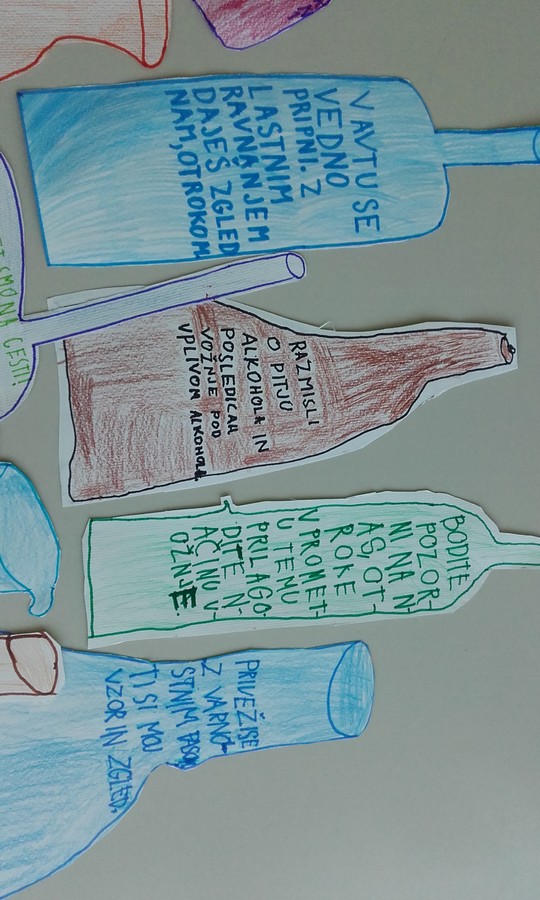 V AVTU SE
VEDNO
PRIPNI. Z
LASTNIM
RAVNANJEM
DAJEŠ ZGLED
NAM, OTROKOM
SMO NA CESTI!
RAZMISLI
O PITJU
ALKOHOLA IN
POSLEDICAH
VOŽNJE POD
VPLIVOM ALKOHOLA
BODITE
POZOR-
NI NA N-
AS, OT-
ROKE
V PROMET-
U TENU
PRILAGO-
DITE N-
AČINU V-
OŽNJE.
PRIVEŽI SE
Z VARNO-
STNIM PASOM
TI SI MOJ
VZOR IN ZGLED.